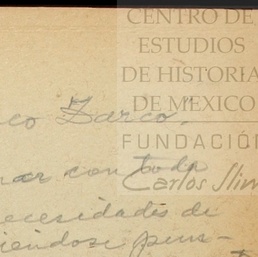 CENTRO DE
ESTUDIOS
DE HISTORIA
DE MEXICO
FUNDACIÓN
Carlos Slim
co Zarco.
nar con toda
ecesidades de
iéndose pens-